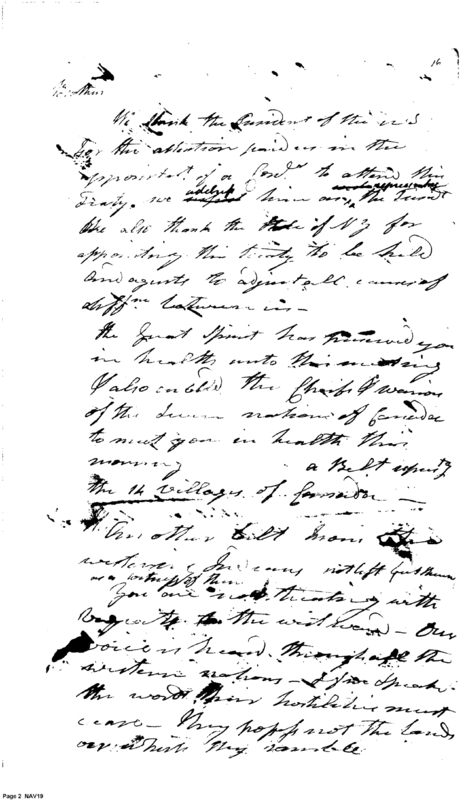 16
Brothers
We thank the President of the U S
for the attention paid us in the
appointmt. of a Comr. to attend this
Treaty. we him as the
We also thank the State of N Y for
appointing this treaty to be held
and agents to adjust all causes of
diff between us –
The Great Spirit has preserved you
in health unto this meeting
& also enabled the Chiefs & warriors
of the Seven nations of Canada
to meet you in health this
morning a Belt
the 14 Villages of Canada –
Another belt from the
western Indians not left
as a witness of them
You are now treating with
to the westward – Our
voice is heard through all the
western nations – if we speak
the word their hostilities must
cease – They possess not the lands
on which they ramble
Page 2 NAV19